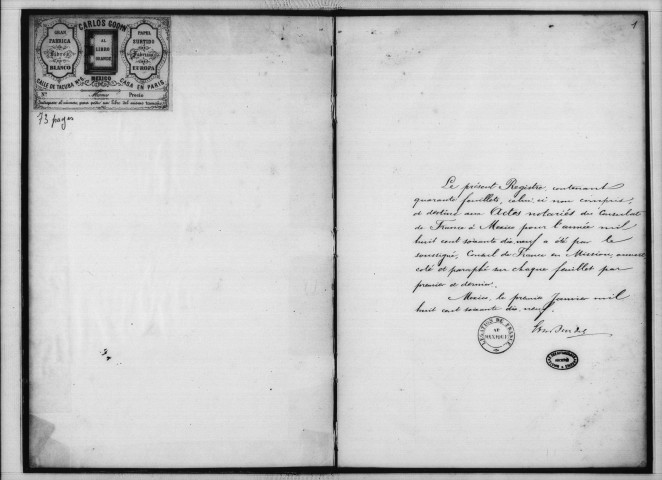 CARLOS GODIN
GRAN
FABRICA
LIBROS
BLANCO
AL
LIBRO
GRANDE
PAPEL
SURTIDO
EUROPA
CALLE DE TACUBA Nº
MEXICO
CASA EN PARIS
Nº
Precio
73 pages
1
Le présent Registre contenant
quarante feuillets, celui-ci non compris,
et destiné aux Actes notariés du Consulat
de France à Mexico pour l'année mil
huit cent soixante dix neuf a été par le
soussigné, Consul de France en Mission,
coté et paraphé sur chaque feuillet par
premier et dernier.
Mexico, le premier Janvier mil
huit cent soixante dix neuf.
LÉGATION DE FRANCE
AU
MEXIQUE